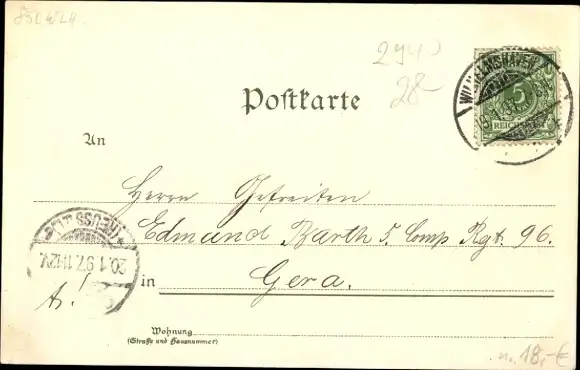 2940
28-
WILHELMSHAVEN
5
REICHSPOST
Postkarte
An
Herrn Gefreiten
Edmund Barth 5. Comp Rgt. 96.
in Gera.
REUSS
20.1.97. 11-12V.
Wohnung
(Straße und Hausnummer)
18,-€